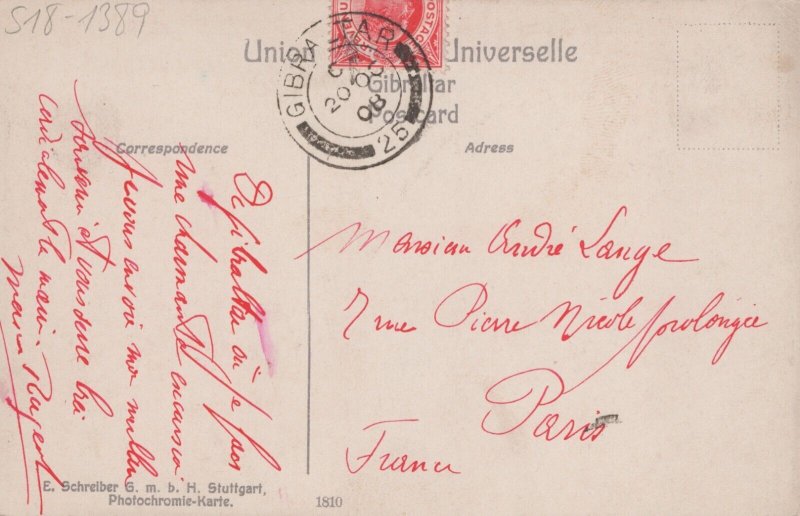 S18-1389
Union Universelle
Gibraltar
Postcard
POSTAGE
GIBRALTAR
OC 20
08
25
Correspondence
Adress
De Gibraltar où je fais
une charmante excursion
je vous envoie mon meilleur
souvenir et vous serre très
cordialement la main.
Monsieur André Lange
7 rue Pierre Nicole prolongée
Paris
France
E. Schreiber G. m. b. H. Stuttgart,
Photochromie-Karte.
1810